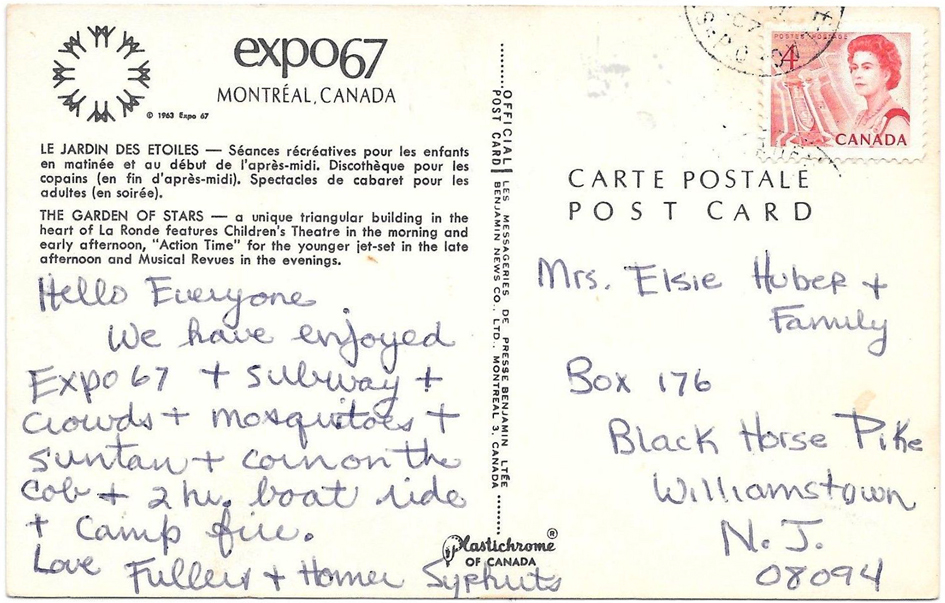 expo67
MONTRÉAL, CANADA
© 1963 Expo 67
LE JARDIN DES ETOILES — Séances récréatives pour les enfants
en matinée et au début de l'après-midi. Discothèque pour les
copains (en fin d'après-midi). Spectacles de cabaret pour les
adultes (en soirée).
THE GARDEN OF STARS — a unique triangular building in the
heart of La Ronde features Children's Theatre in the morning and
early afternoon, "Action Time" for the younger jet-set in the late
afternoon and Musical Revues in the evenings.
Hello Everyone
We have enjoyed
Expo 67 + subway +
crowds + mosquitoes +
suntan + corn on the
cob + 2 hr. boat ride
+ camp fire.
Love Fullers + Homer Syphrits
OFFICIAL POST CARD
LES MESSAGERIES DE PRESSE BENJAMIN LTÉE
BENJAMIN NEWS CO., LTD., MONTREAL 3, CANADA
Plastichrome ®
OF CANADA
POSTES POSTAGE
4
CANADA
CARTE POSTALE
POST CARD
Mrs. Elsie Huber +
Family
Box 176
Black Horse Pike
Williamstown
N.J.
08094